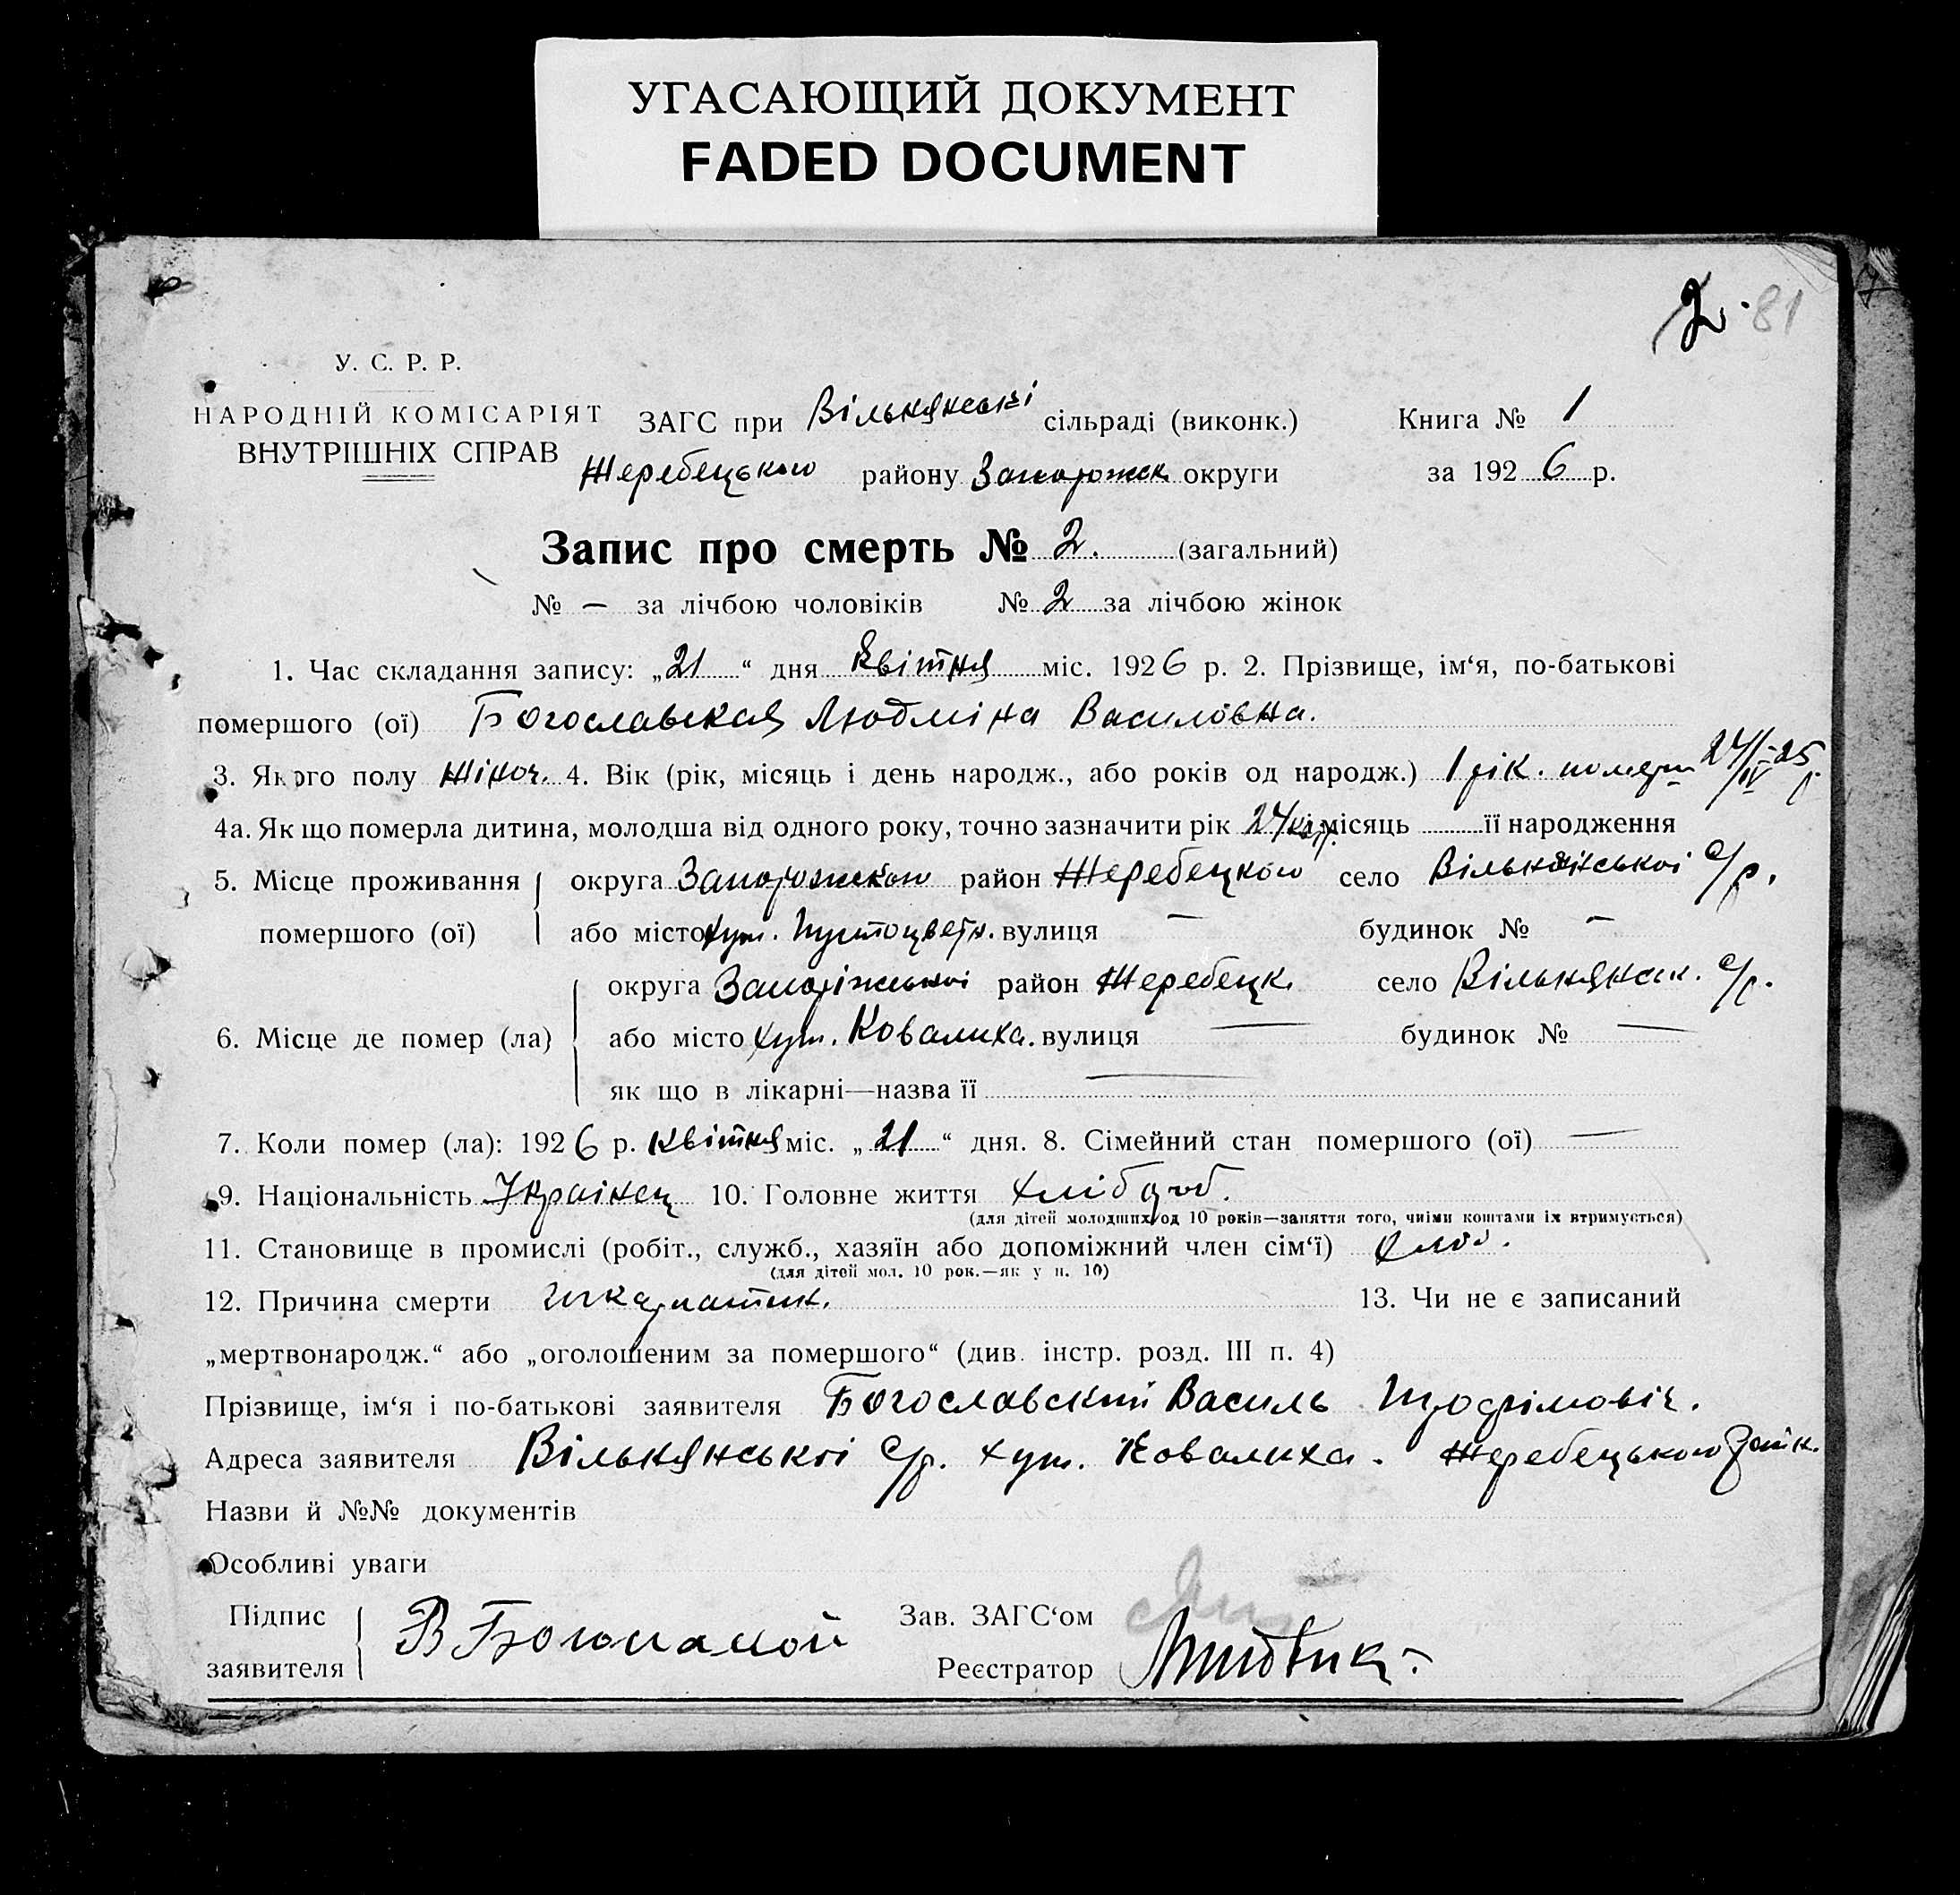 УГАСАЮЩИЙ ДОКУМЕНТ
FADED DOCUMENT
2. 81
У. С. Р. Р.
НАРОДНІЙ КОМІСАРІЯТ
ВНУТРІШНІХ СПРАВ
ЗАГС при Вільнянські сільраді (виконк.) Книга № 1
Жеребецького району Запорожск округи за 1926 р.
Запис про смерть № 2. (загальний)
№ — за лічбою чоловіків № 2 за лічбою жінок
1. Час складання запису: „21“ дня Квітня міс. 1926 р. 2. Прізвище, ім‘я, по-батькові
помершого (ої) Богославская Людміна Василовна.
3. Якого полу жіноч. 4. Вік (рік, місяць і день народж., або років од народж.) 1 рік. 24/IV-25 р.
4а. Як що померла дитина, молодша від одного року, точно зазначити рік 24/ місяць її народження
5. Місце проживання округа Запорожского район Жеребецкого село Вільнянської с/р.
помершого (ої) або місто хут. Пустоцветн. вулиця — будинок № —
округа Запоріжської район Жеребецк. село Вільнянськ. с/р.
6. Місце де помер (ла) або місто хут. Ковалиха. вулиця — будинок № —
як що в лікарні—назва її —
7. Коли помер (ла): 1926 р. Квітня міс. „21“ дня. 8. Сімейний стан помершого (ої) —
9. Національність Українец 10. Головне життя хлібороб.
(для дітей молодших од 10 років—заняття того, чиїми коштами їх втримується)
11. Становище в промислі (робіт., служб., хазяїн або допоміжний член сім‘ї)
(для дітей мол. 10 рок.—як у п. 10)
12. Причина смерти шкарлатин. 13. Чи не є записаний
„мертвонародж.“ або „оголошеним за помершого“ (див. інстр. розд. III п. 4)
Прізвище, ім‘я і по-батькові заявителя Богославский Василь Трофімовіч.
Адреса заявителя Вільнянської с/р. хут. Ковалиха. Жеребецького району.
Назви й №№ документів
Особливі уваги
Підпис
заявителя В Богославский
Зав. ЗАГС‘ом
Реєстратор